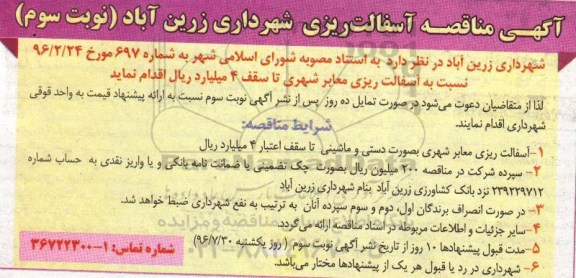 آگهی مناقصه آسفالت‌ریزی شهرداری زرین آباد (نوبت سوم)
شهرداری زرین آباد در نظر دارد به استناد مصوبه شورای اسلامی شهر به شماره ۶۹۷ مورخ ۹۶/۲/۲۴
نسبت به آسفالت ریزی معابر شهری تا سقف ۴ میلیارد ریال اقدام نماید
لذا از متقاضیان دعوت می‌شود در صورت تمایل ده روز پس از نشر آگهی نوبت سوم نسبت به ارائه پیشنهاد قیمت به واحد فوق
شهرداری اقدام نمایند.
شرایط مناقصه:
۱-آسفالت ریزی معابر شهری بصورت دستی و ماشینی تا سقف اعتبار ۴ میلیارد ریال
۲- سپرده شرکت در مناقصه ۲۰۰ میلیون ریال بصورت چک تضمینی یا ضمانت نامه بانکی و یا واریز نقدی به حساب شماره
۲۳۹۲۲۹۷۱۲ نزد بانک کشاورزی زرین آباد بنام شهرداری زرین آباد
۳- در صورت انصراف برندگان اول، دوم و سوم سپرده آنان به ترتیب به نفع شهرداری ضبط خواهد شد.
۴- سایر جزئیات و اطلاعات مربوطه در اسناد مناقصه ارائه می‌گردد.
۵-مدت قبول پیشنهادها ۱۰ روز از تاریخ نشر آگهی نوبت سوم ( روز یکشنبه ۹۶/۷/۳۰)
۶- شهرداری در رد یا قبول هر یک از پیشنهادها مختار می‌باشد.
شماره تماس: ۱-۳۶۷۲۲۳۰۰